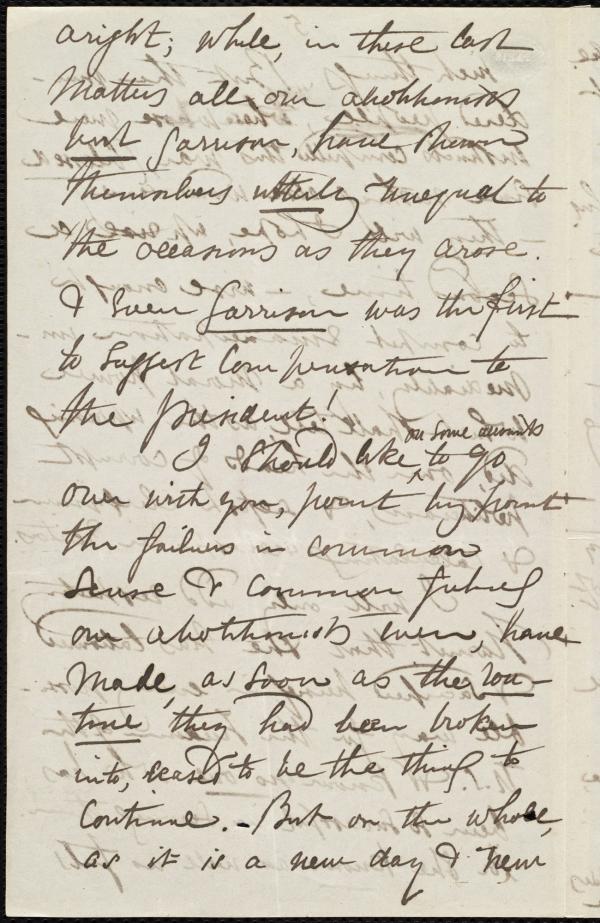 aright; while, in these last
matters all our abolitionists
but Garrison, have shewn
themselves utterly unequal to
the occasions as they arose.
& even Garrison was the first
to suggest compensation to
the president!
on some accounts
I should like ^ to go
over with you, point by point
the failures in common
sense & common feeling
our abolitionists even, have
made, as soon as the rou-
tine they had been broken
into, ceased to be the thing to
continue. - But on the whole,
as it is a new day & new